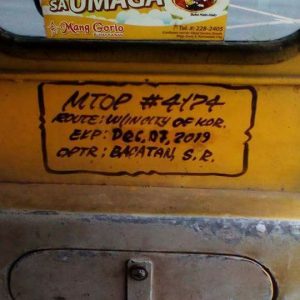 SA UMAGA
Mang Gorio
Tel #: 228-2405
MTOP #4174
ROUTE: W/IN CITY OF KOR.
EXP: DEC. 07, 2019
OPTR: BACATAN, S. R.